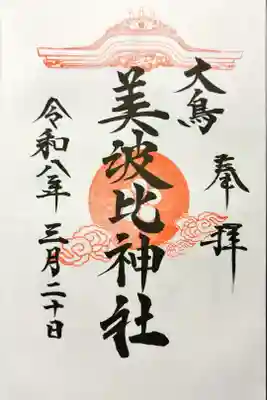 奉拝
大鳥
美波比神社
令和八年三月二十日